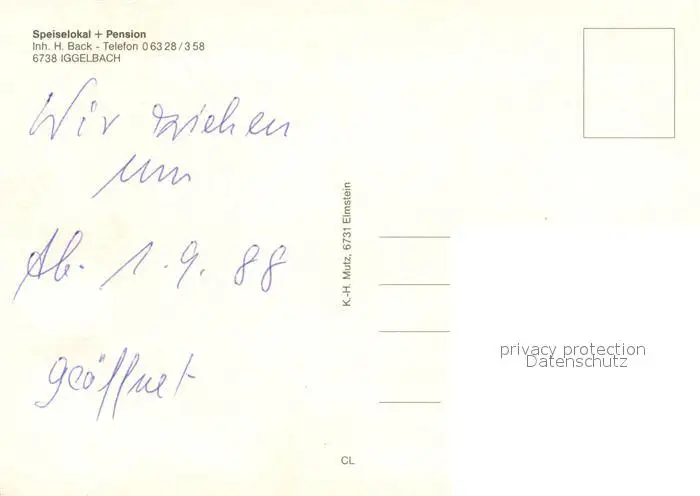 Speiselokal + Pension
Inh. H. Back - Telefon 0 63 28 / 3 58
6738 IGGELBACH
Wir ziehen
um
Ab. 1.9.88
geöffnet
K.-H. Mutz, 6731 Elmstein
privacy protection
Datenschutz
CL